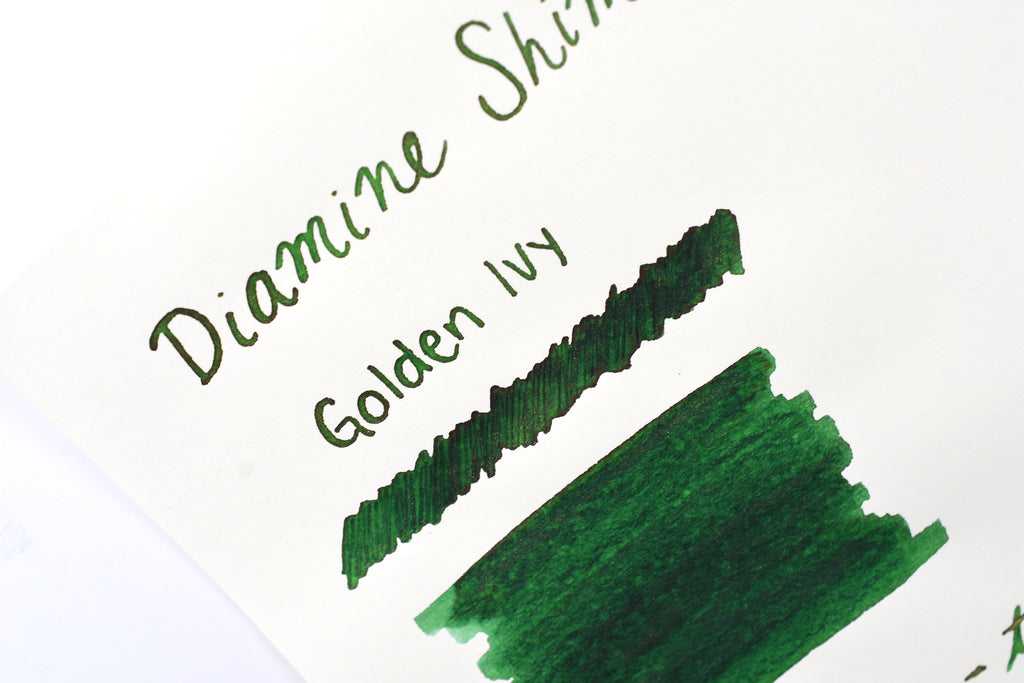 Diamine Shim
Golden Ivy